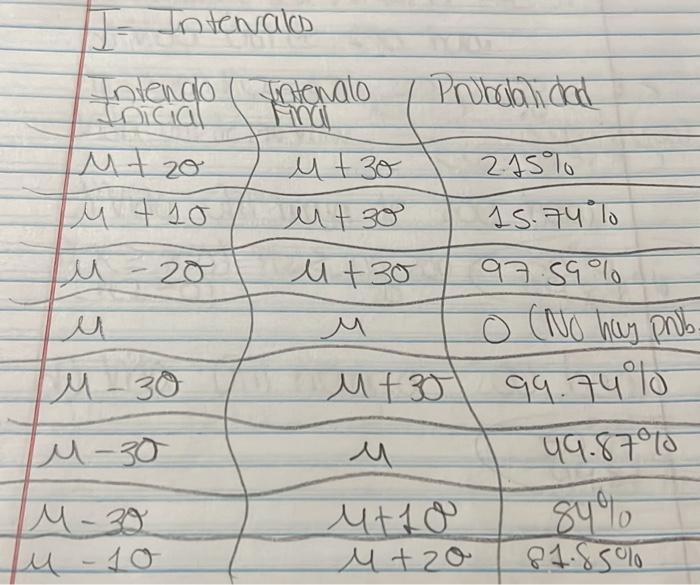 I- Intervalos
Intervalo Inicial | Intervalo Final | Probabilidad
μ + 2σ | μ + 3σ | 2.15%
μ + 1σ | μ + 3σ | 15.74%
μ - 2σ | μ + 3σ | 97.59%
μ | μ | 0 (No hay prob.
μ - 3σ | μ + 3σ | 99.74%
μ - 3σ | μ | 49.87%
μ - 3σ | μ + 1σ | 84%
μ - 1σ | μ + 2σ | 81.85%